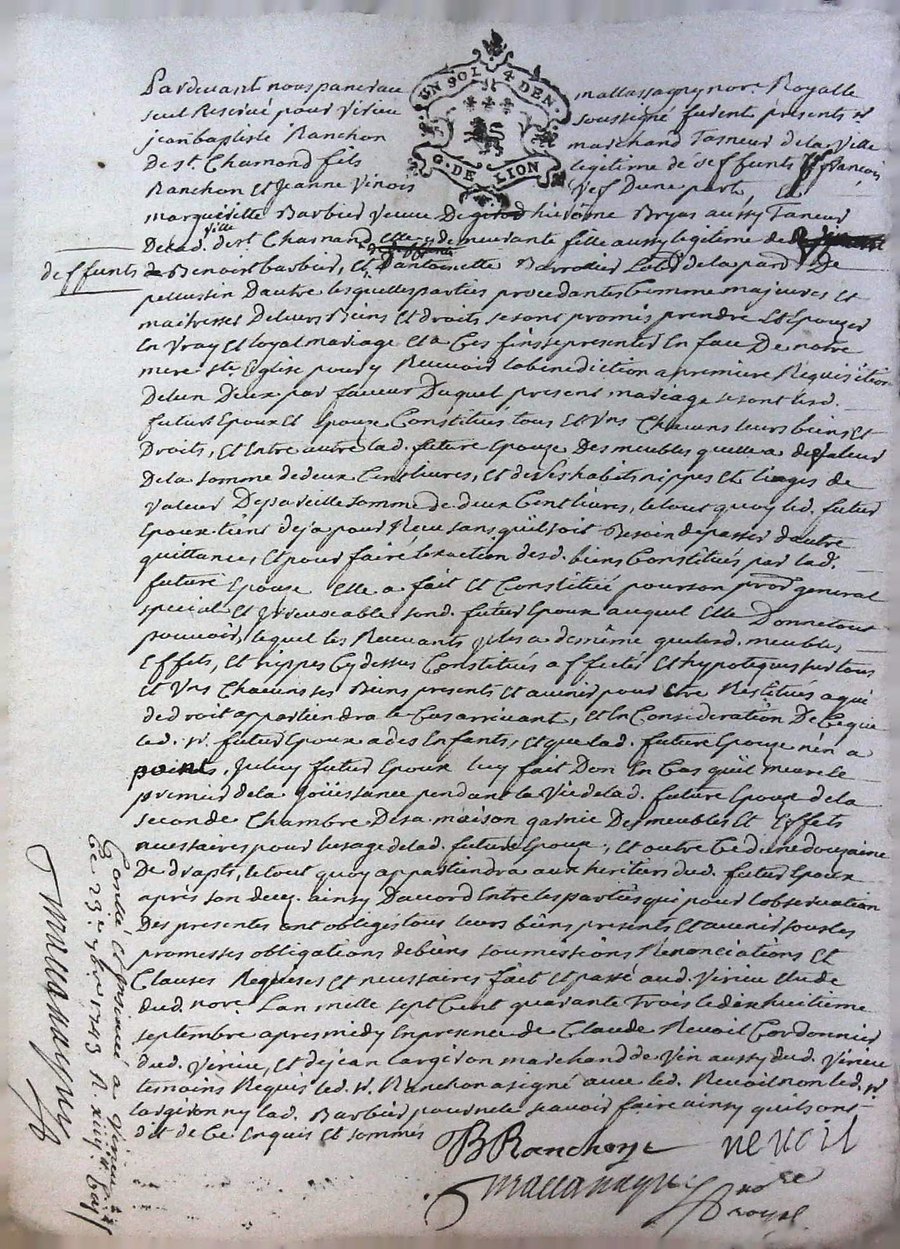 UN SOL 4 DEN.
G. DE LION
Pardevant nous pancrau mallassagny nore. Royalle
seul Reservé pour virieu soussigné furent présents sr
jean baptiste Ranchon marchand Tasneur de la ville
De st. Chamond fils legitime de deffunts françois
Ranchon et Jeanne Vinois vef D'une part,
margueritte Barbier veuve De hierosme Bryas aussy Taneur
De lad. ville de st. Chamand demeurante fille aussy legitime de
deffunts Benoist barbier, et D'antoinette Barrodier de la par. De
pellussin D'autre lesquelles parties procedantes Comme majeures et
maitresses De leurs Biens et droits se sont promis prendre et Epouzer
En vray et loyal mariage et a Ces fins se presenter En face De notre
mere ste. Eglise pour y Recevoir la benediction a premiere Requisition
De l'un D'eux par faveur Duquel present mariage se sont lesd.
futurs Epoux et Epouze Constitués tous et Uns Chacuns leurs biens et
Droits, et Entre autre lad. future Epouze Des meubles quelle a de valeur
De la somme de deux Cent livres, et de ses habits nippes et linges de
valeur De pareille somme de deux Cent livres, le tout quoy led. futur
Epoux tient deja pour Reçu sans qu'il soit Besoin de passer d'autre
quittance, et pour faire l'exaction desd. biens Constitués par lad.
future Epouse Elle a fait et Constitué pour son procr general
special et irrevocable sond. futur Epoux auquel Elle Donne tout
pouvoir, lequel les Recevants de même que lesd. meubles,
Effets, et nippes Cy dessus Constitués affectés et hypoteques sur tous
et Uns Chacuns ses Biens presents et avenir pour Etre Restitués a qui
de droit appartiendra le Cas arrivant, et En Consideration De Ce que
led. sr. futur Epoux a des Enfants, et que lad. future Epouze n'en a
point, Iceluy futur Epoux luy fait Don En Cas qu'il meure le
premier de la joüissance pendant la vie de lad. future Epouze de la
seconde Chambre De sa maison garnie De meubles et Effets
necessaires pour l'usage de lad. future Epouze, et outre Ce d'une douzaine
De drapts, le tout quoy appartiendra aux heritiers dud. futur Epoux
après son decez. ainsy D'accord Entre les parties qui pour l'observation
Des presentes ont obligés tous leurs biens presents et avenir sous les
promesses obligations de biens soumissions Renonciations et
Clauses Requises et necessaires fait et passé aud. Virieu Etude
dud. nore. L'an mille sept Cent quarante Trois le dix huitieme
septembre apres midy En presence de Claude Revoil Cordonnier
dud. Virieu, et de jean largiron marchand de vin aussy dud. Virieu
temoins Requis led. sr. Ranchon a signé avec led. Revoil non led. sr.
largiron ny lad. Barbier pour ne le scavoir faire ainsy qu'ils ont
dit de Ce Enquis et sommés
B Ranchon revoil
nore
royal
Conlé et insinué a virieu
Ce 23e 7bre 1743 R.